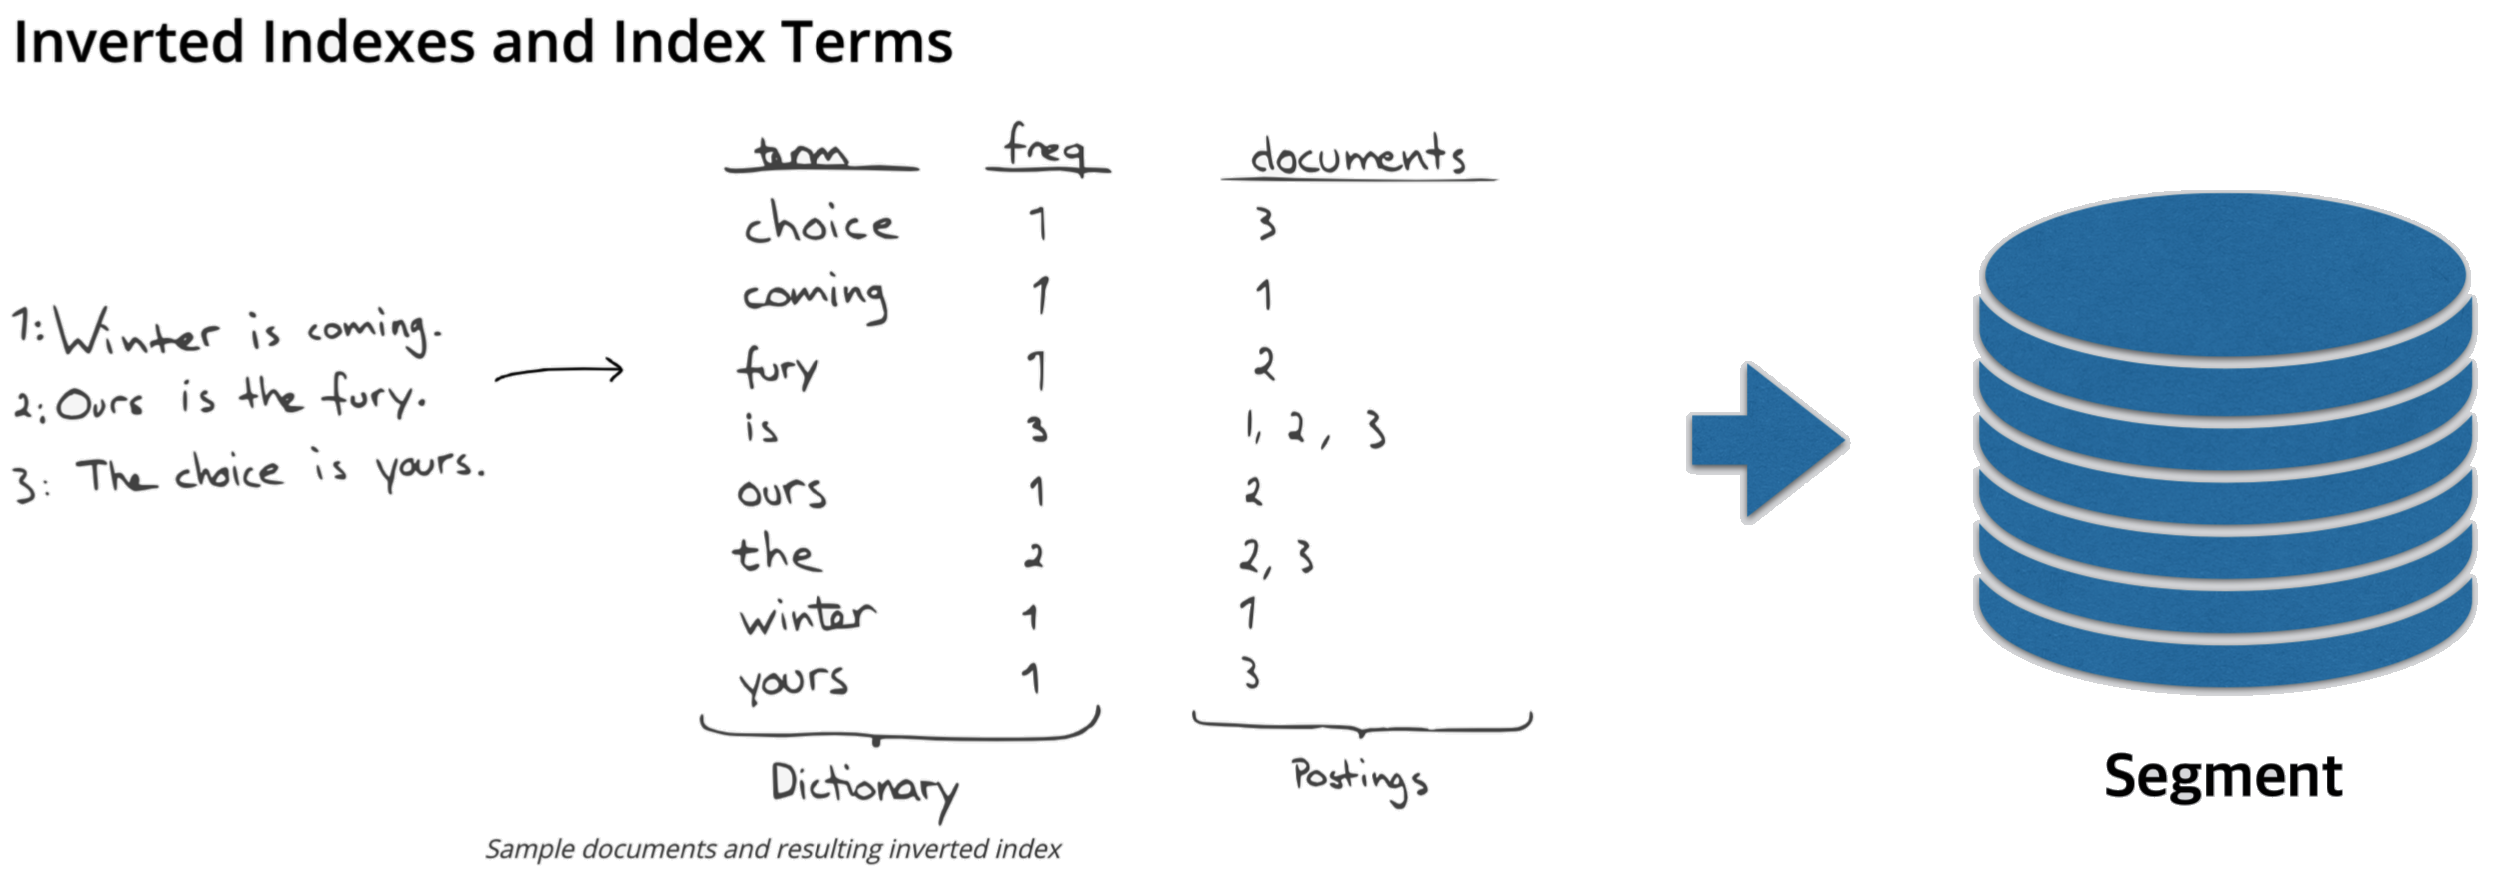 Inverted Indexes and Index Terms
1: Winter is coming.
2: Ours is the fury.
3: The choice is yours.
term freq documents
choice 1 3
coming 1 1
fury 1 2
is 3 1, 2, 3
ours 1 2
the 2 2, 3
winter 1 1
yours 1 3
Dictionary Postings
Sample documents and resulting inverted index
Segment